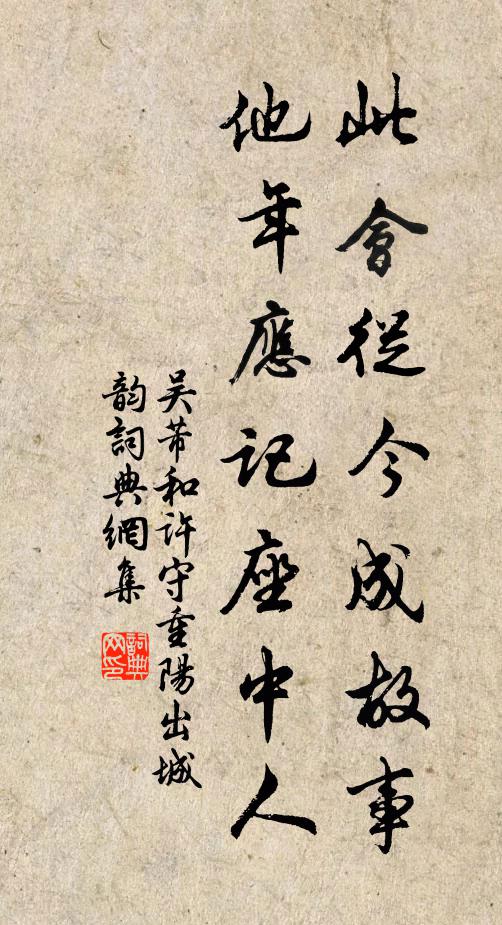 此會從今成故事
他年應記座中人
吴芾和許守重陽出城
韵詞典網集
詞典
网印